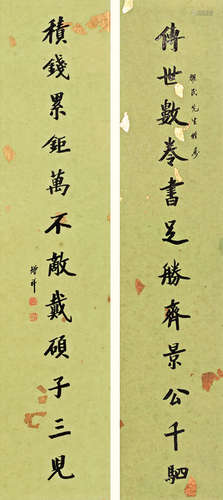 傳世數卷書足勝齊景公千駟
民先生
積錢累鉅萬不敵戴碩子三兒
增祥